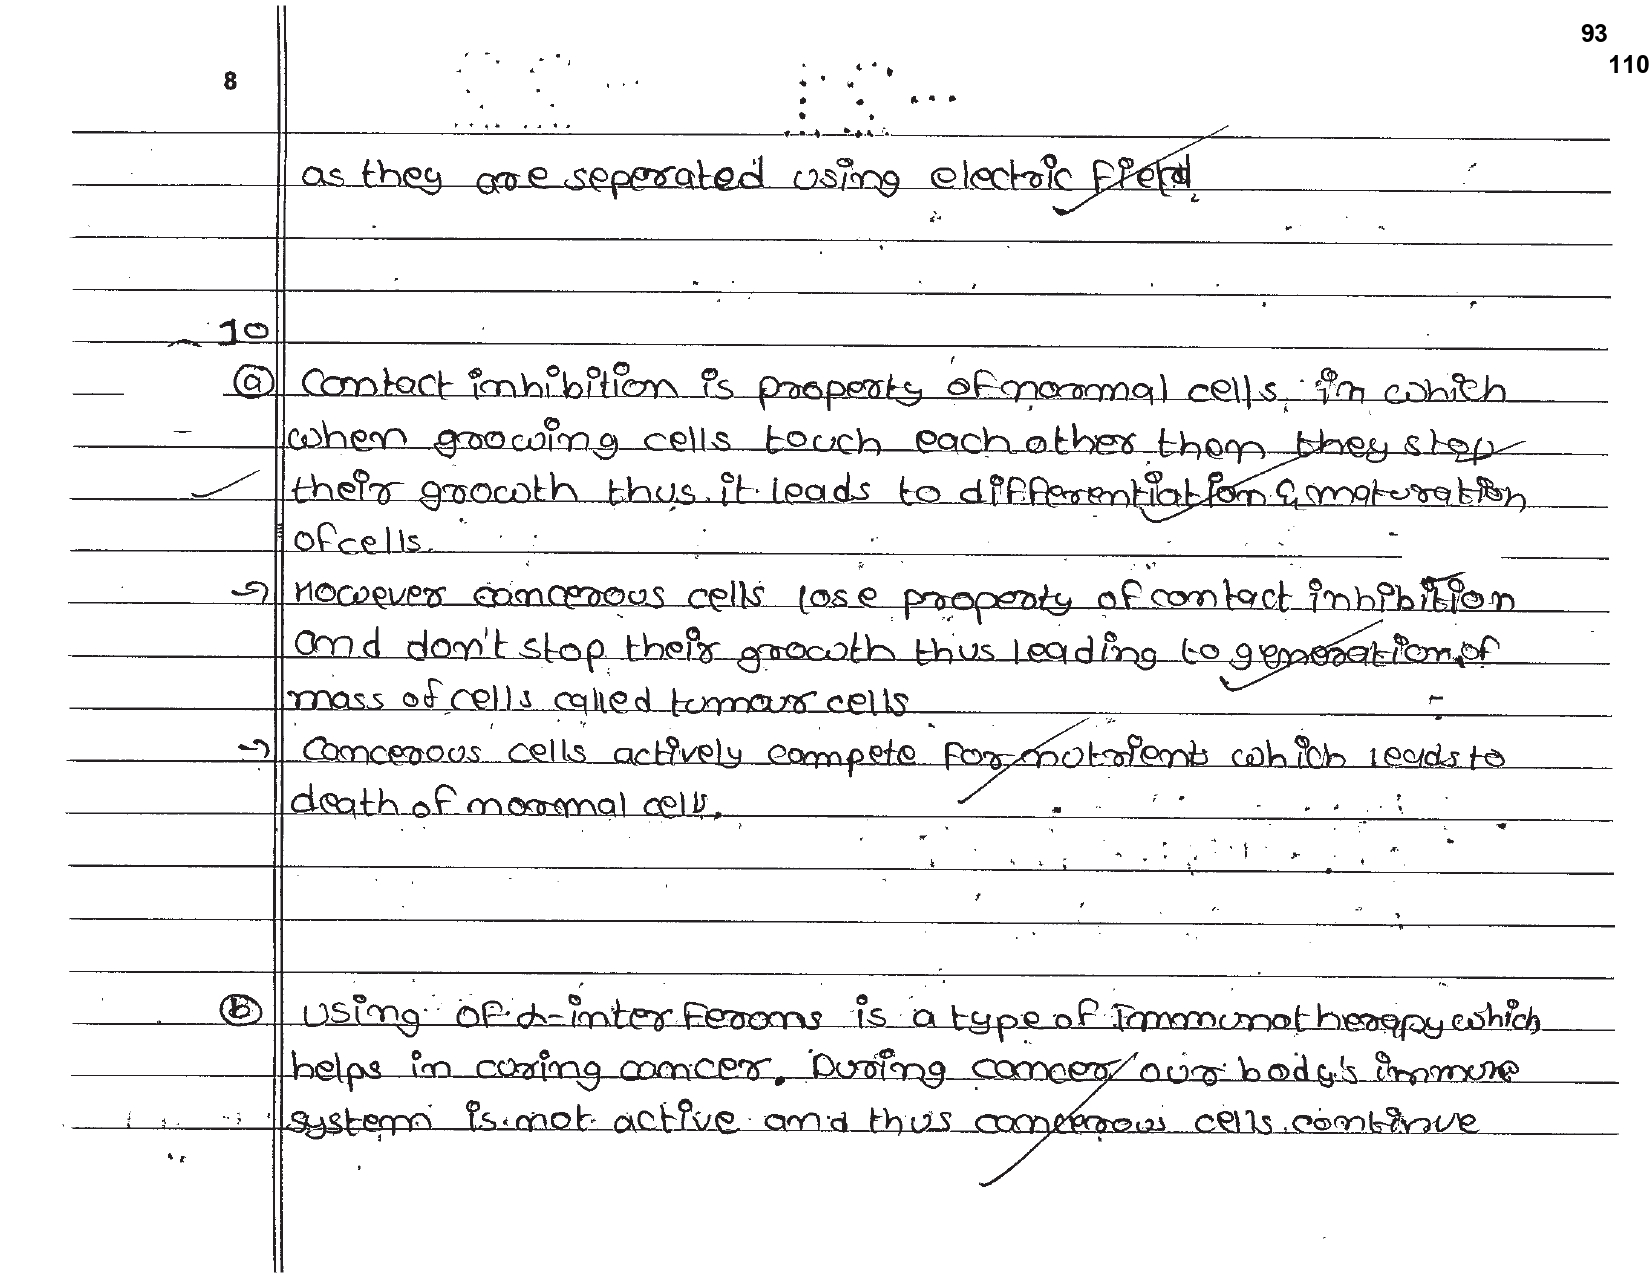 93
110
8
as they are seperated using electric field.
10
(a) Contact inhibition is property of normal cells, in which
when growing cells touch each other then they stop
their growth thus it leads to differentiation & maturation
of cells.
→ However cancerous cells lose property of contact inhibition
and don't stop their growth thus leading to generation of
mass of cells called tumour cells
→ Cancerous cells actively compete for nutrients which leads to
death of normal cells.
(b) Using of α-interferons is a type of Immunotherapy which
helps in curing cancer. During cancer our body's immune
system is not active and thus cancerous cells continue